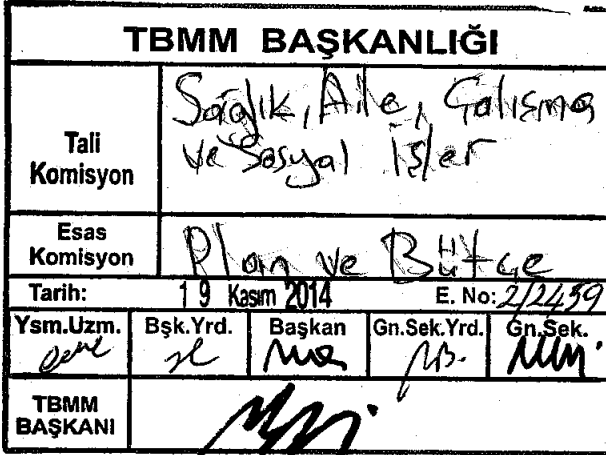 TBMM BAŞKANLIĞI
Tali Komisyon
Sağlık, Aile, Çalışma
ve Sosyal İşler
Esas Komisyon
Plan ve Bütçe
Tarih: 19 Kasım 2014 E. No: 2/2459
Ysm.Uzm. Bşk.Yrd. Başkan Gn.Sek.Yrd. Gn.Sek.
TBMM BAŞKANI